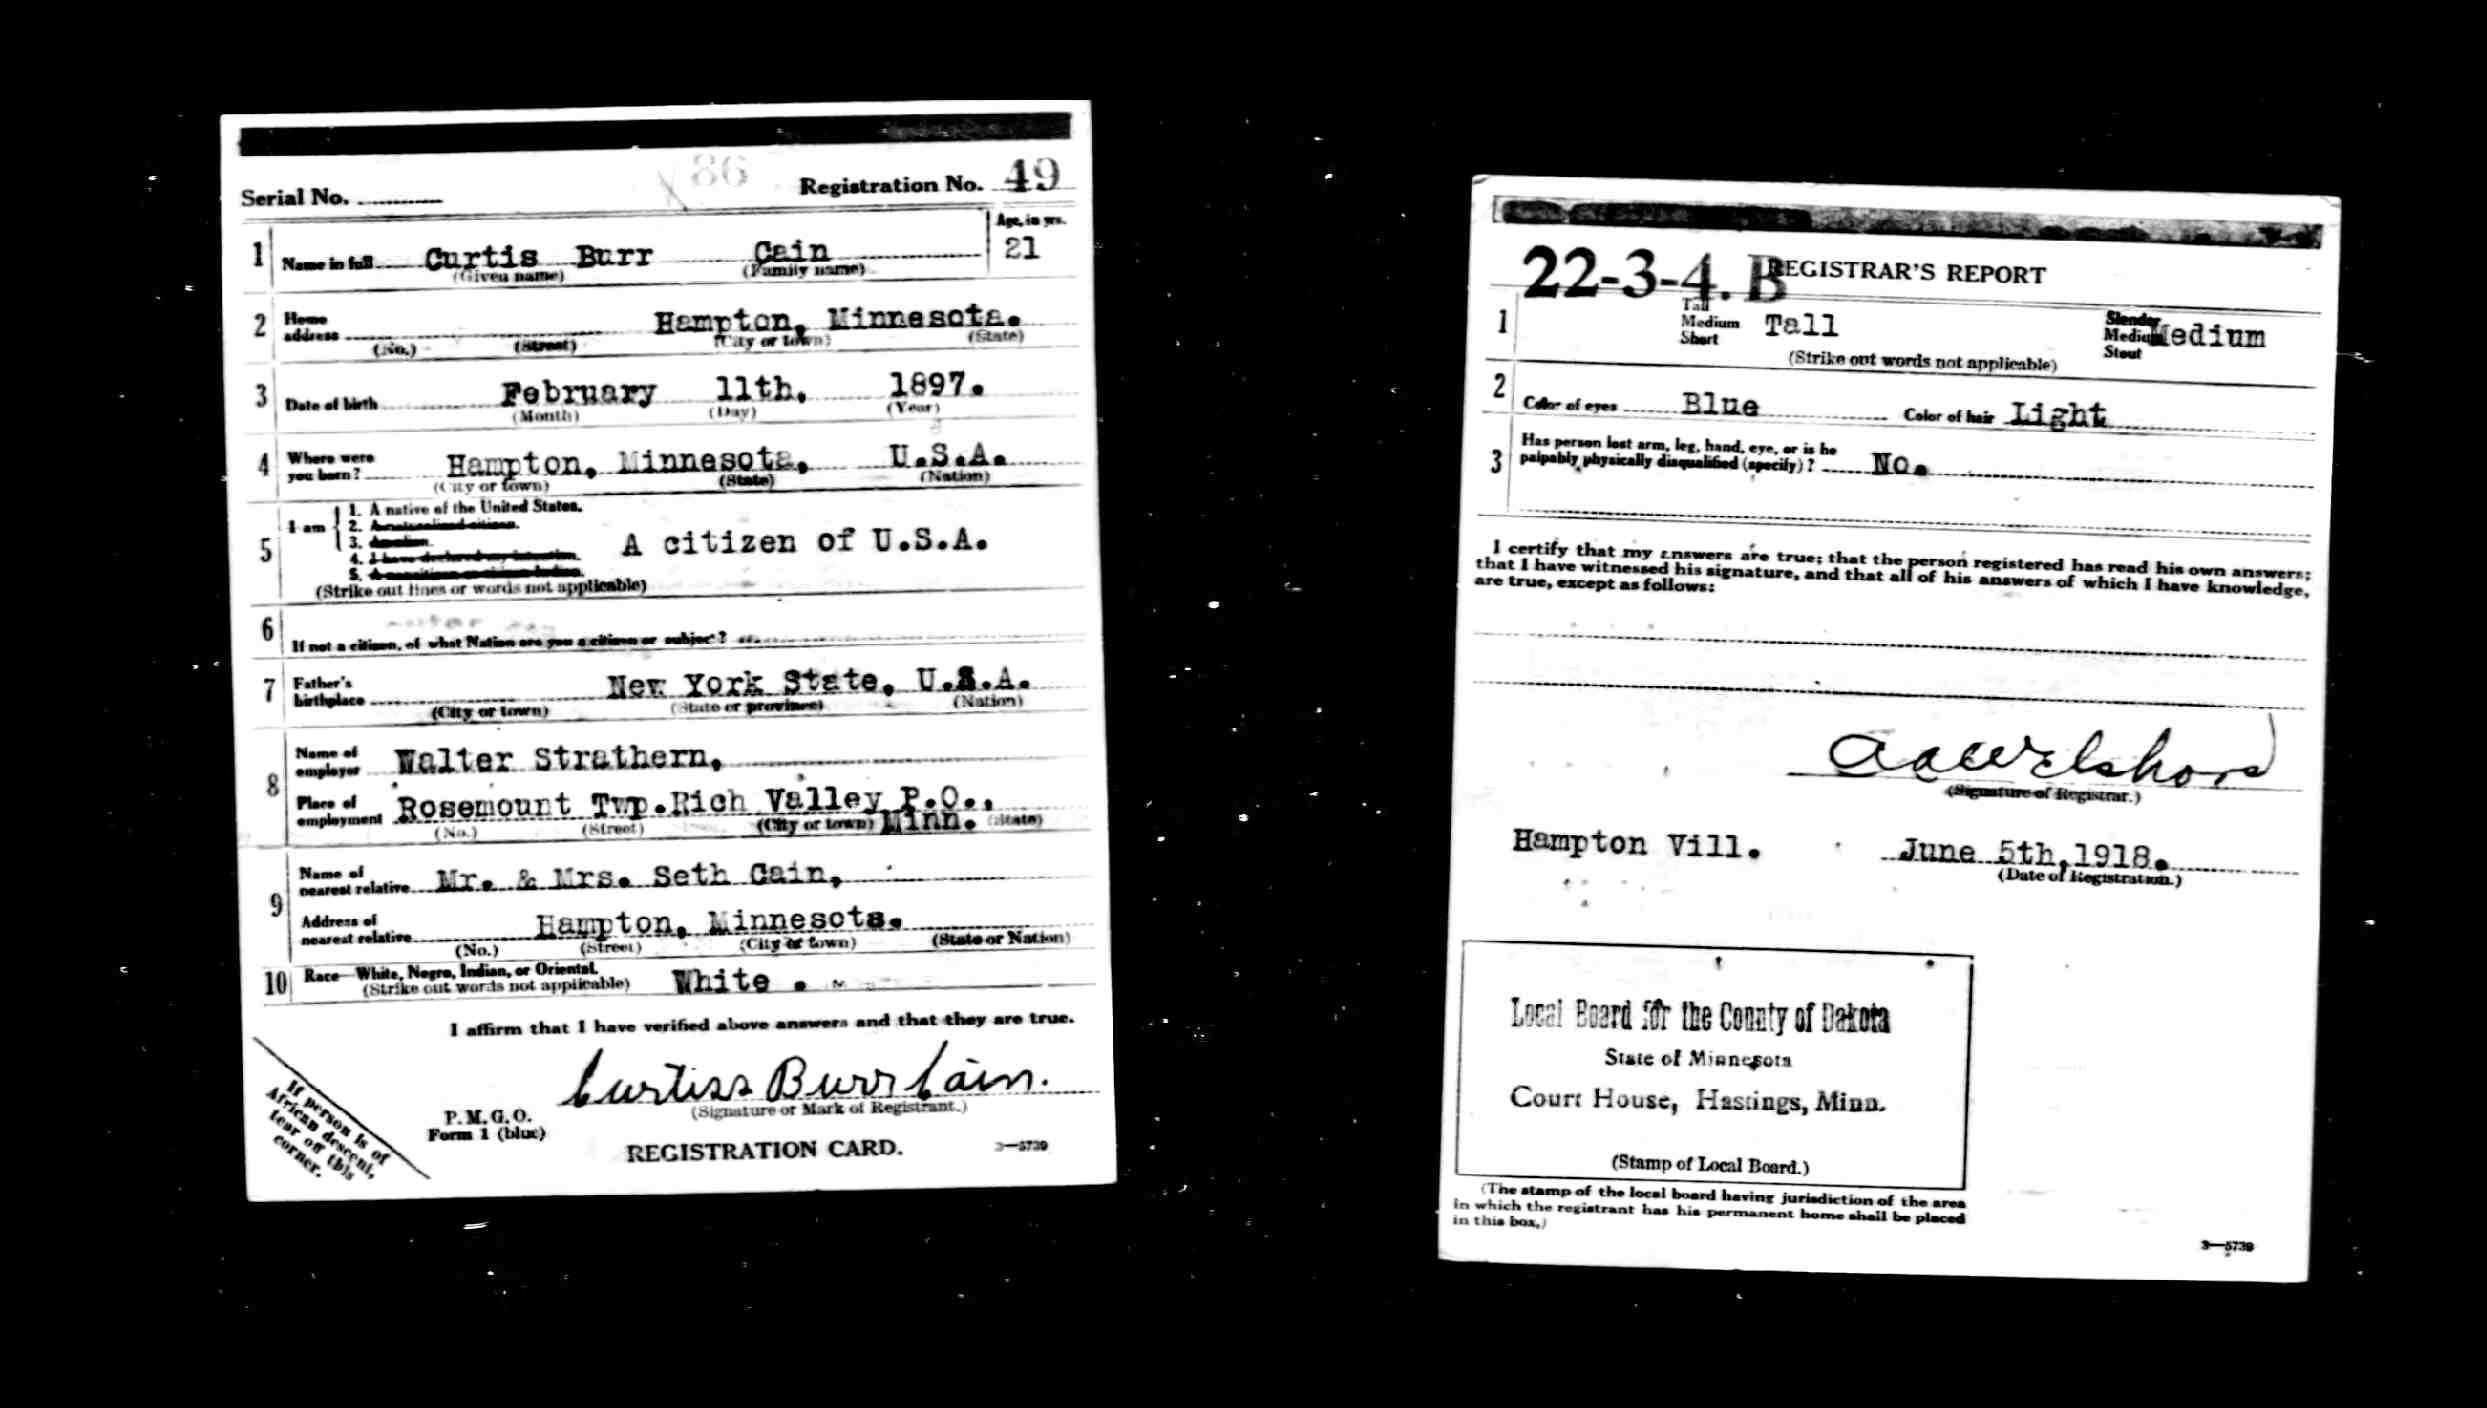 86
Serial No. Registration No. 49
1 Name in full Curtis Burr Cain Age, in yrs. 21
(Given name) (Family name)
2 Home address Hampton, Minnesota.
(No.) (Street) (City or town) (State)
3 Date of birth February 11th, 1897.
(Month) (Day) (Year)
4 Where were you born? Hampton, Minnesota, U.S.A.
(City or town) (State) (Nation)
5 I am 1. A native of the United States.
2. A naturalized citizen.
3. An alien.
4. I have declared my intention.
5. A noncitizen or citizen Indian.
A citizen of U.S.A.
(Strike out lines or words not applicable)
6 If not a citizen, of what Nation are you a citizen or subject?
7 Father's birthplace New York State, U.S.A.
(City or town) (State or province) (Nation)
8 Name of employer Walter Strathern,
Place of employment Rosemount Twp. Rich Valley P.O., Minn.
(No.) (Street) (City or town) (State)
9 Name of nearest relative Mr. & Mrs. Seth Cain,
Address of nearest relative Hampton, Minnesota.
(No.) (Street) (City or town) (State or Nation)
10 Race—White, Negro, Indian, or Oriental.
(Strike out words not applicable) White.
I affirm that I have verified above answers and that they are true.
Curtiss Burr Cain.
(Signature or Mark of Registrant.)
P. M. G. O.
Form 1 (blue)
REGISTRATION CARD.
3—5739
If person is of
African descent,
tear off this
corner.
22-3-4. B REGISTRAR'S REPORT
1 Tall Medium Short Tall Slender Medium Stout Medium
(Strike out words not applicable)
2 Color of eyes Blue Color of hair Light
3 Has person lost arm, leg, hand, eye, or is he
palpably physically disqualified (specify)? No.
I certify that my answers are true; that the person registered has read his own answers;
that I have witnessed his signature, and that all of his answers of which I have knowledge,
are true, except as follows:
(Signature of Registrar.)
Hampton Vill. June 5th, 1918.
(Date of Registration.)
Local Board for the County of Dakota
State of Minnesota
Court House, Hastings, Minn.
(Stamp of Local Board.)
(The stamp of the local board having jurisdiction of the area
in which the registrant has his permanent home shall be placed
in this box.)
3—5739